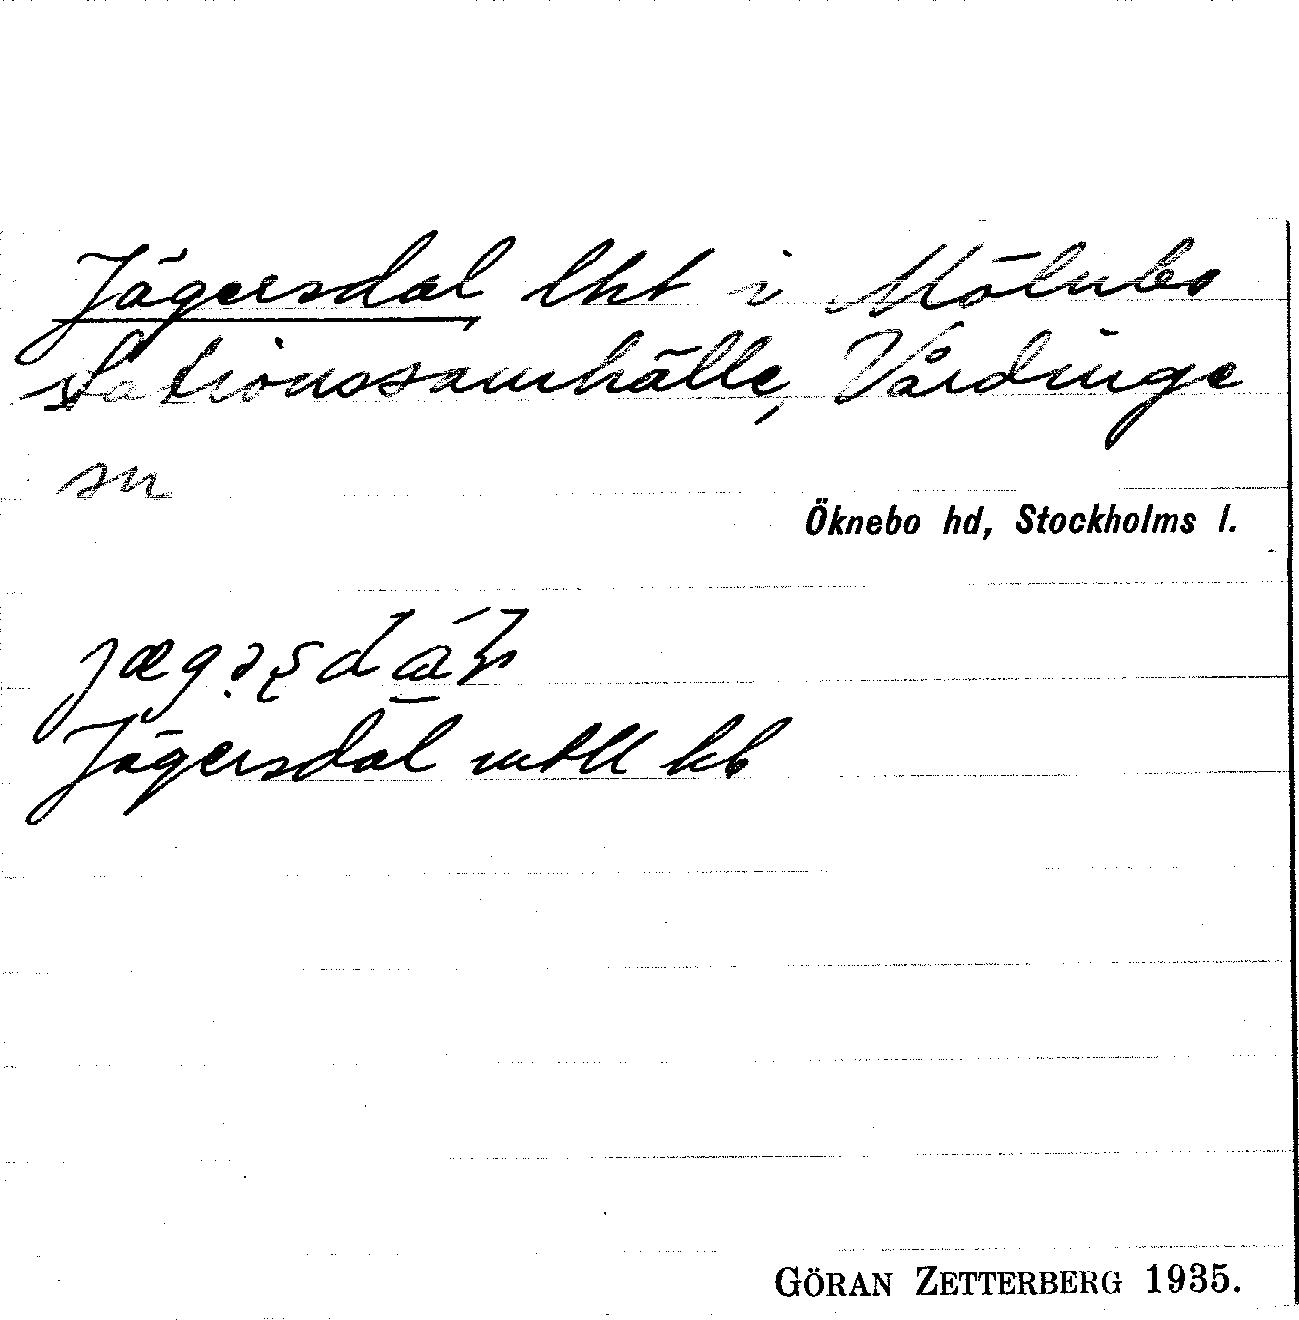 Jägersdal lht i Mölnbo
stationssamhälle, Vårdinge
sn
Öknebo hd, Stockholms l.
Jägersdal mtll kb
GÖRAN ZETTERBERG 1935.